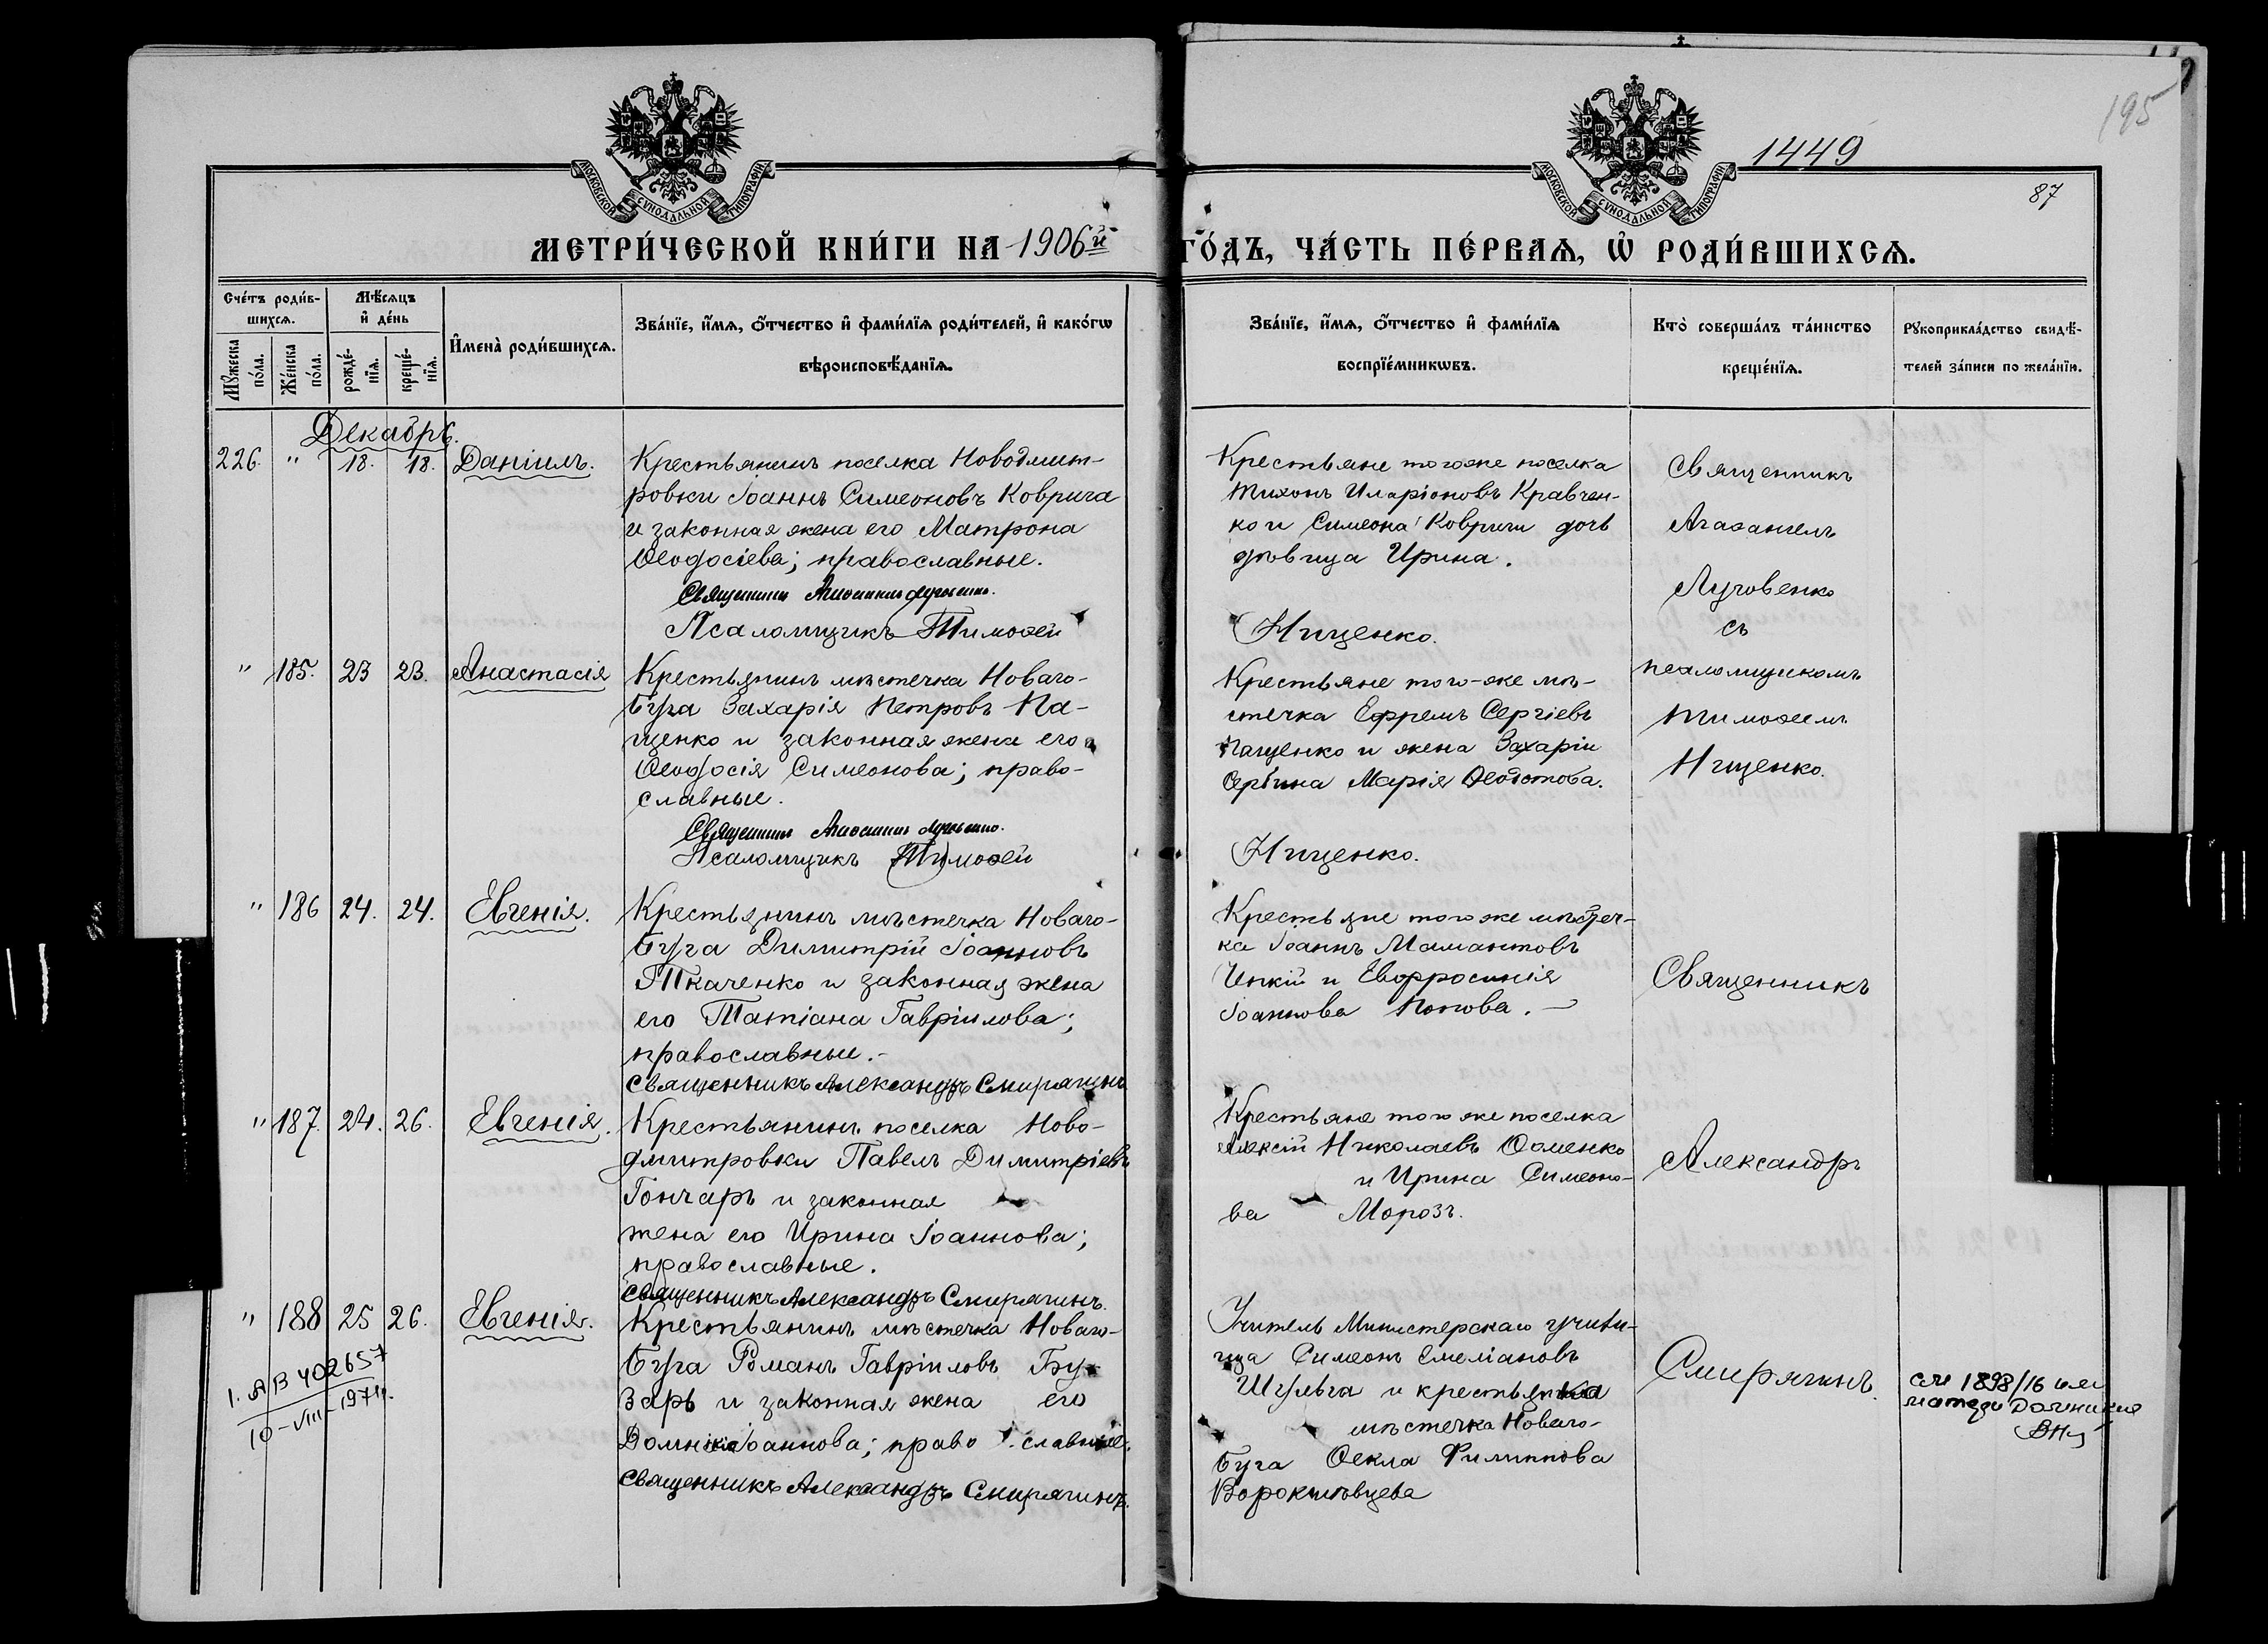 1449
195
87
МОСКОВСКОЙ СУНОДАЛЬНОЙ ТИПОГРАФІИ
МОСКОВСКОЙ СУНОДАЛЬНОЙ ТИПОГРАФІИ
МЕТРИ́ЧЕСКОЙ КНИ́ГИ НА 1906й
ГО́ДЪ, ЧА́СТЬ ПЕ́РВАЯ, Ѡ҆ РОДИ́ВШИХСЯ.
Сче́тъ роди́в-
шихся.
Мѣ́сяцъ
и҆ де́нь
Мꙋ́жеска по́ла.
Же́нска по́ла.
рожде́-нїя.
креще́-нїя.
И҆мена̀ роди́вшихся.
Зва́нїе, и҆́мя, ѻ҆́тчество и҆ фами́лїя роди́телей, и҆ како́гѡ
вѣроисповѣ́данїя.
Зва́нїе, и҆́мя, ѻ҆́тчество и҆ фами́лїя
воспрїе́мникѡвъ.
Кто̀ соверша́лъ та́инство
креще́нїя.
Рꙋкоприкла́дство свидѣ́-
телей за́писи по жела́нїю.
Декабрь.
226. " 18. 18. Даніилъ.
Крестьянинъ поселка Новодмит-
ровки Іоаннъ Симеоновъ Коврига
и законная жена его Матрона
Ѳеодосіева; православные.
Священникъ Агаѳангелъ Луговенко.
Псаломщикъ Тимоѳей
Крестьяне того же поселка
Тихонъ Иларіоновъ Кравчен-
ко и Симеона Ковриги дочь
дѣвица Ирина.
Нищенко.
Священникъ
Агаѳангелъ
Луговенко
съ
псаломщикомъ
Тимоѳеемъ
Нищенко.
" 185. 23 23. Анастасія
Крестьянинъ мѣстечка Новаго-
Буга Захарія Петровъ Па-
щенко и законная жена его
Ѳеодосія Симеонова; право-
славные.
Священникъ Агаѳангелъ Луговенко.
Псаломщикъ Тимоѳей
Крестьяне того-же мѣ-
стечка Ефремъ Сергіевъ
Пащенко и жена Захаріи
Сербина Марія
Нищенко.
" 186 24. 24. Евгенія.
Крестьянинъ мѣстечка Новаго-
Буга Димитрій Іоанновъ
Ткаченко и законная жена
его Татіана Гавріилова;
православные.-
Священникъ Александръ Смирягинъ
Крестьяне того же мѣстеч-
ка Іоаннъ Мамантовъ
и Евфросинія
Іоаннова Попова. —
Священникъ
" 187. 24. 26. Евгенія.
Крестьянинъ поселка Ново-
дмитровки Павелъ Димитріевъ
Гончаръ и законная
жена его Ирина Іоаннова;
православные.
Священникъ Александръ Смирягинъ.
Крестьяне того же поселка
Алексій Николаевъ Ѳоменко
и Ирина Симеоно-
ва Морозъ.
Александръ
" 188 25 26. Евгенія.
Крестьянинъ мѣстечка Новаго-
Буга Романъ Гавріиловъ Бу-
зарь и законная жена его
Домникія Іоаннова; православные.
Священникъ Александръ Смирягинъ.
Учитель Министерскаго учили-
ща Симеонъ Емеліановъ
Шульга и крестьянка
мѣстечка Новаго-
Буга Ѳекла Филиппова
Ворокшовцева
Смирягинъ.
1. АВ 402657
10-VIII-1974г.
см 1898/16 имя
матери Домникия